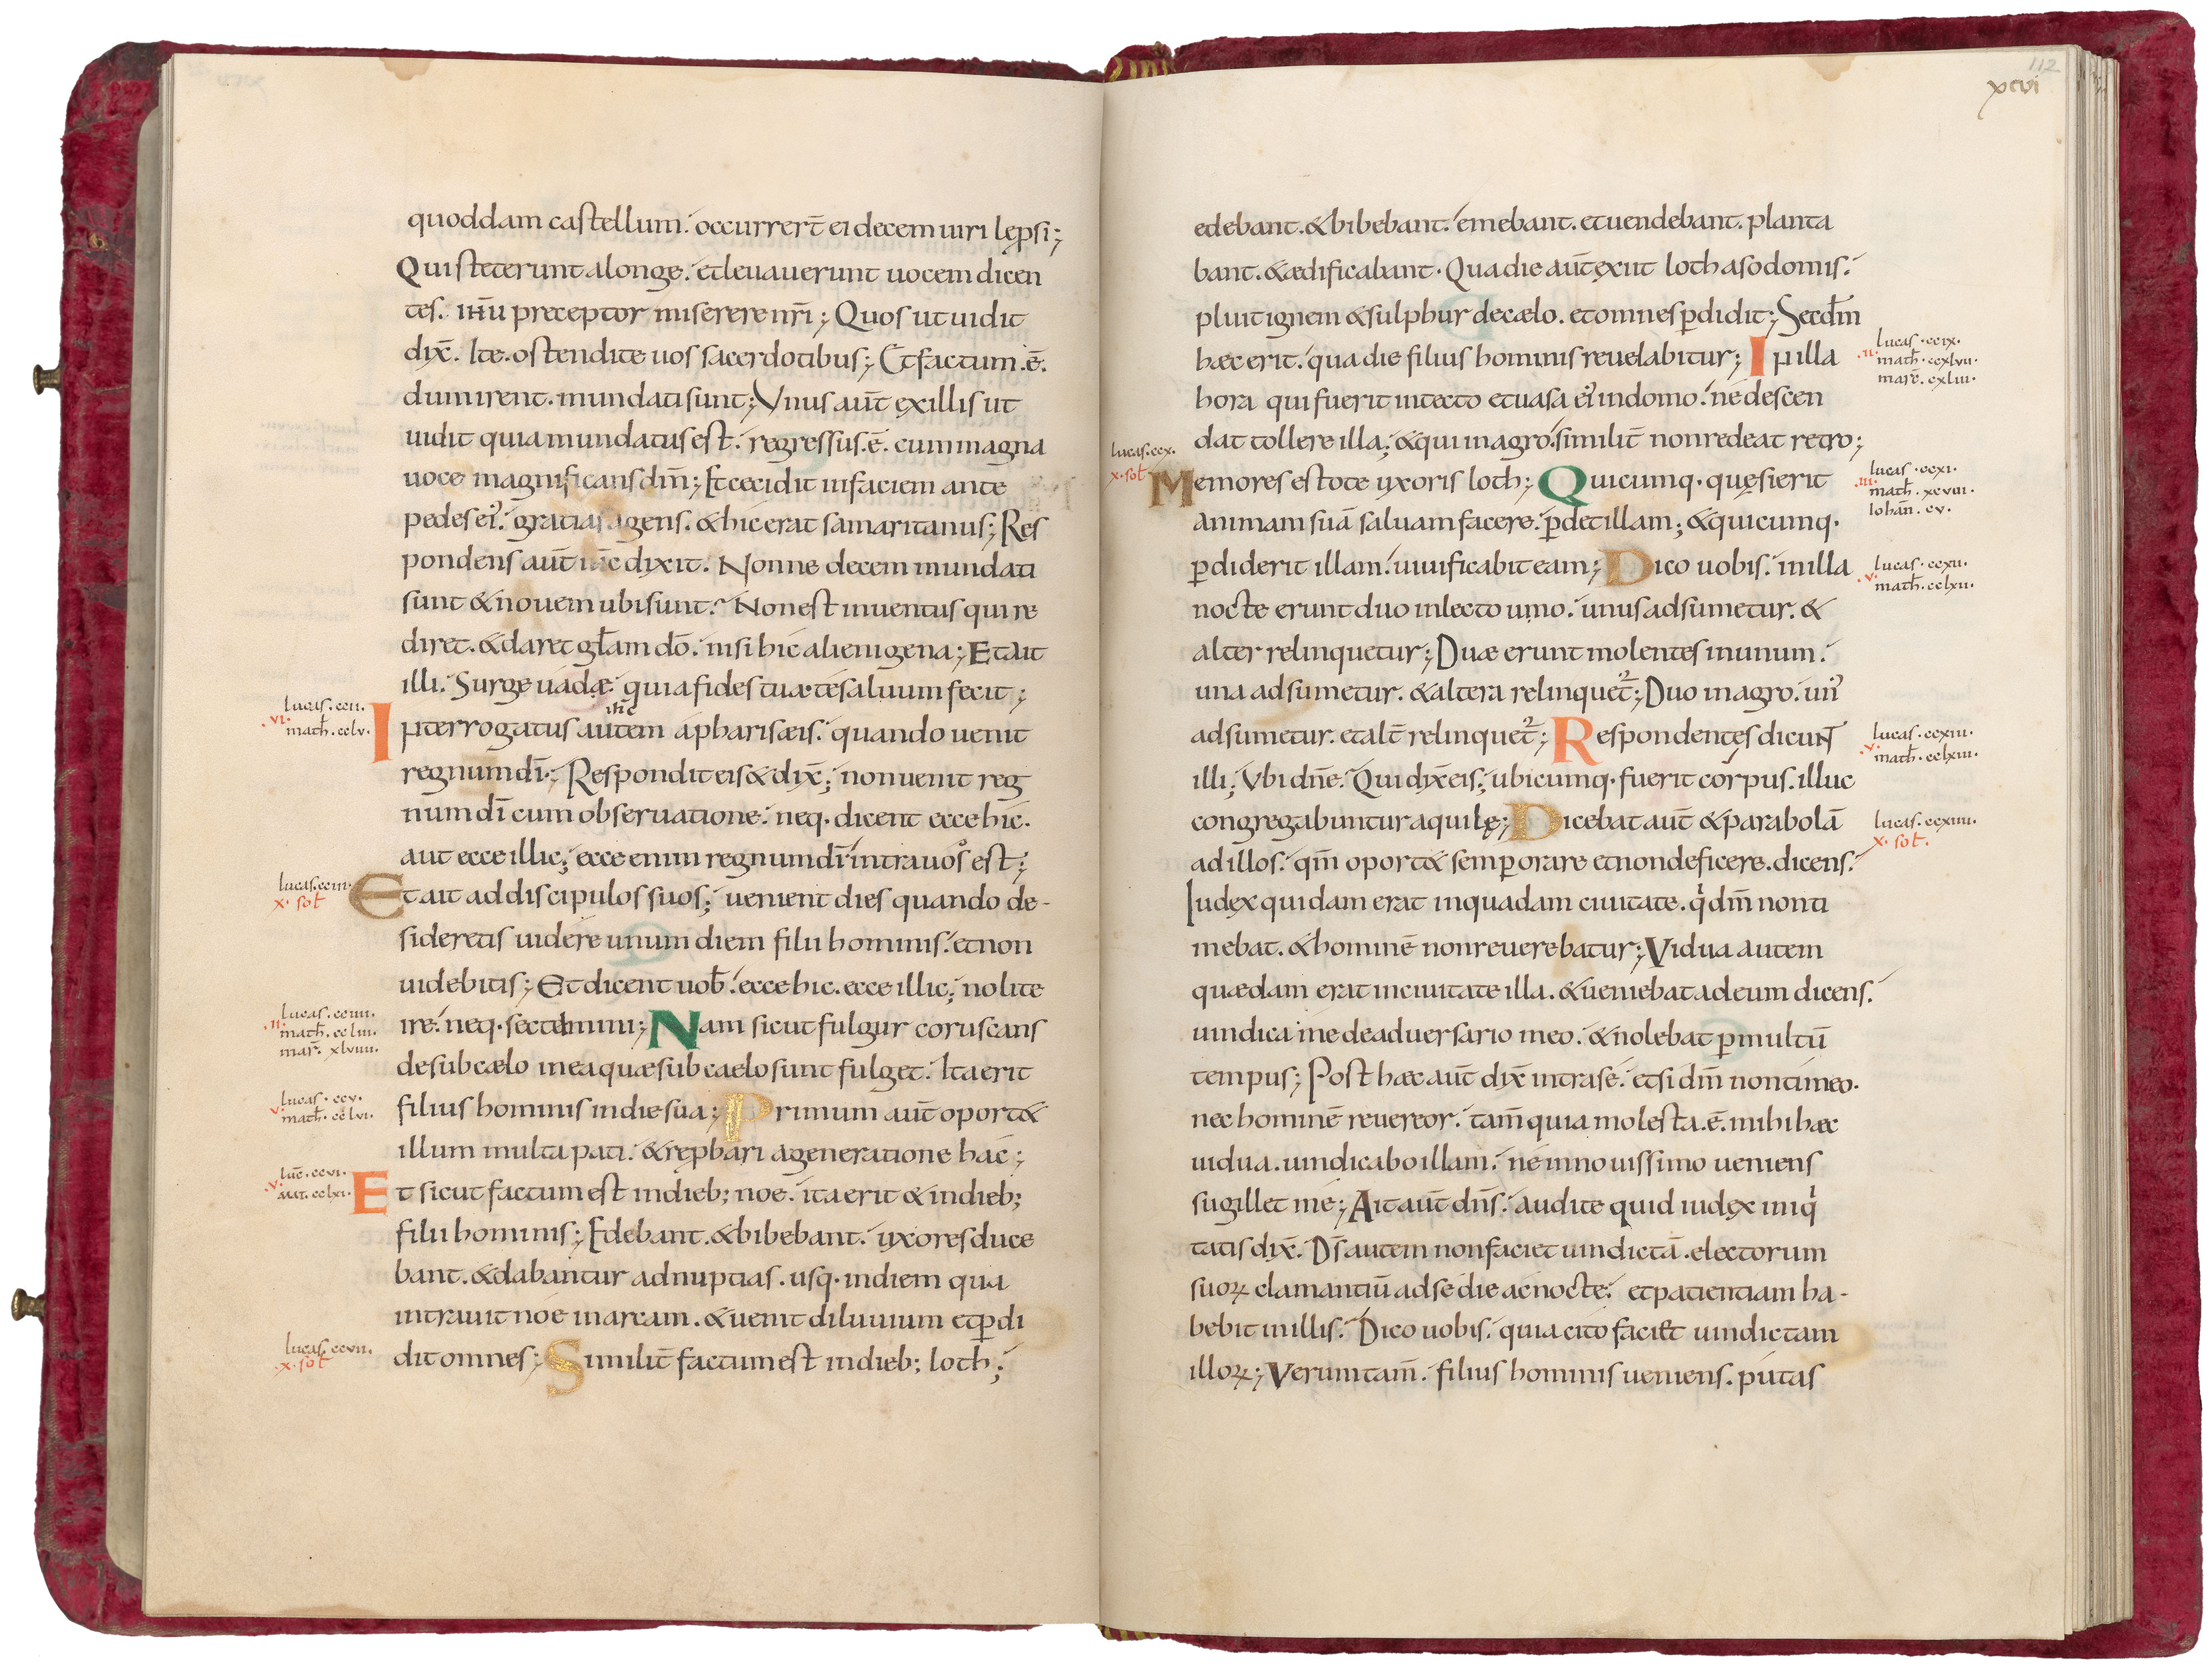 quoddam castellum. occurrer̄t ei decem uiri lęprsi;
Qui steterunt alonge. etleuauerunt uocem dicen
tes. ihū preceptor miserere nr̄i; Quos ut uidit
dix̄. Ite. ostendite uos sacerdotibus; Et factum .ē.
dum irent. mundati sunt; Vnus aūt exillis ut
uidit quia mundatus est. regressus .ē. cum magna
uoce magnificans dm̄; Et cecidit infaciem ante
pedes ei'. gratias agens. & hic erat samaritanus; Res
pondens aūt ihc̄ dixit. Nonne decem mundati
sunt & nouem ubi sunt? Non est inuentus qui re
diret. & daret głam dō. nisi hic alienigena; Et ait
illi. Surge uadæ. quia fides tua te saluum fecit;
lucas. ccii.
.vi.
math̄. cclv.
ihc̄
Interrogatus autem apharisæis. quando uenit
regnum dī. Respondit eis & dix̄; non uenit reg
num dī cum obseruatione. neq. dicent ecce hic.
aut ecce illic; ecce enim regnum dī intra uos est;
lucas. cciii.
x. sol̄
Et ait ad discipulos suos; uenient dies quando de-
sideretis uidere unum diem filii hominis. et non
uidebitis; Et dicent uob̄. ecce hic. ecce illic; nolite
lucas. cciiii.
.ii.
math̄. ccliii.
mar̄. xlviiii.
ire. neq. sectemini; Nam sicut fulgur coruscans
desub cælo inea quæ sub caelo sunt fulget. Ita erit
lucas. ccv.
v.
math̄. cclvi.
filius hominis indie sua; Primum aūt oport&
illum multa pati. & rep̱bari ageneratione hac;
luc̄. ccvi.
.v.
mt. cclxi.
Et sicut factum est indieb; noe. ita erit & indieb;
filii hominis; Edebant. & bibebant. uxores duce
bant. & dabantur adnuptias. usq. indiem qua
intrauit noe inarcam. & uenit diluuium et p̱di
lucas. ccvii.
x. sol̄
dit omnes; Similit̄ factum est indieb; loth;
112
xcvi
edebant. & bibebant. emebant. et uendebant. planta
bant. & ædificabant. Qua die aūt exiit loth asodomis.
pluit ignem & sulphur decælo. et omnes p̱didit; Secdm̄
hæc erit. qua die filius hominis reuelabitur; In illa
lucas. ccix.
.ii.
math̄. ccxlvii.
marc̄. cxliii.
hora qui fuerit intecto et uasa ei' indomo. ne descen
dat tollere illa; & qui inagro. similit̄ non redeat retro;
lucas. ccx.
x. sol̄
Memores estote uxoris loth; Quicumq. quęsierit
lucas. ccxi.
.iii.
math̄. xcviii.
Iohan̄. cv.
animam suā saluam facere. p̱det illam; & quicumq.
p̱diderit illam. uiuificabit eam; Dico uobis. in illa
lucas. ccxii.
.v.
math̄. cclxii.
nocte erunt duo inlecto uno. unus adsumetur. &
alter relinquetur; Duæ erunt molentes inunum.
una adsumetur. & altera relinquet̄; Duo inagro. un'
adsumetur. et alt̄ relinquet̄; Respondentes dicunt
lucas. ccxiii.
.v.
math̄. cclxiii.
illi; Vbi dn̄e. Qui dix̄ eis; ubicumq. fuerit corpus. illuc
congregabuntur aquilę; Dicebat aūt & parabolā
lucas. ccxiiii.
x. sol̄.
ad illos. qm̄ oport& semp̱ orare et non deficere. dicens.
Iudex quidam erat inquadam ciuitate. q̍ dm̄ non ti
mebat. & hominē non reuerebatur; Vidua autem
quædam erat inciuitate illa. & ueniebat ad eum dicens.
uindica me deaduersario meo. & nolebat p̱ multū
tempus; Post hæc aūt dix̄ intra se. etsi dm̄ non timeo.
nec hominē reuereor. tam̄ quia molesta .ē. mihi hæc
uidua. uindicabo illam. ne innouissimo ueniens
sugillet me; Ait aūt dn̄s. audite quid iudex iniq̍
tatis dix̄. Ds̄ autem non faciet uindictā. electorum
suoꝝ clamantiū adse die ac nocte. et patientiam ha-
bebit inillis. Dico uobis. quia cito faciet uindictam
illoꝝ; Verumtam̄. filius hominis ueniens. putas